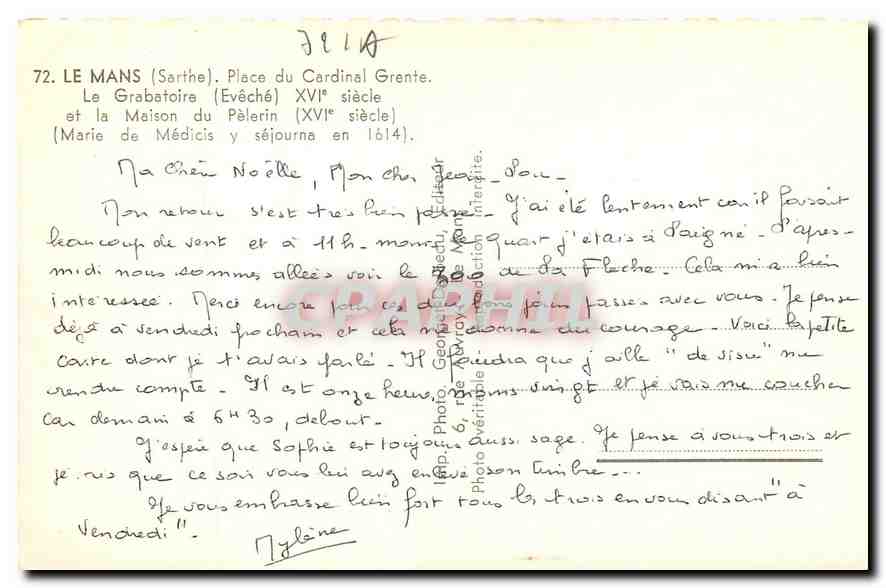 J21A
72. LE MANS (Sarthe). Place du Cardinal Grente.
Le Grabatoire (Evêché) XVIe siècle
et la Maison du Pèlerin (XVIe siècle)
(Marie de Médicis y séjourna en 1614).
Ma Chère Noëlle, Mon cher Jean-Lou-
Mon retour s'est très bien passé - J'ai été lentement car il faisait
beaucoup de vent et à 11h - moins le quart j'étais à Saigné - L'après-
midi nous sommes allées voir le zoo de La Flèche. Cela m'a bien
intéressée. Merci encore pour ces deux bons jours passés avec vous. Je pense
déjà à vendredi prochain et cela me donne du courage - Voici la petite
carte dont je t'avais parlé - Il faudra que j'aille "de visu" me
rendre compte - Il est onze heures moins vingt et je vais me coucher
car demain à 6H30, debout -
J'espère que Sophie est toujours aussi sage. Je pense à vous trois et
je ris que ce soir vous lui avez enlevé son timbre...
Je vous embrasse bien fort tous les trois en vous disant "à
Vendredi" -
Mylène
Imp. Photo. Georget Editeur
6, rue Auvray, Le Mans
Photo véritable interdite.
CPAPHIL